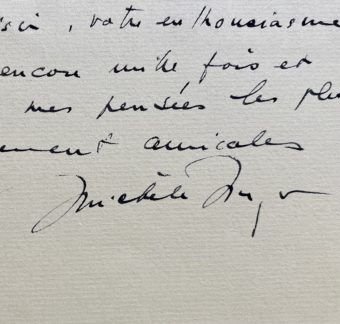 , votre enthousiasme
encore mille fois et
mes pensées les plu
ement amicales
Michèle